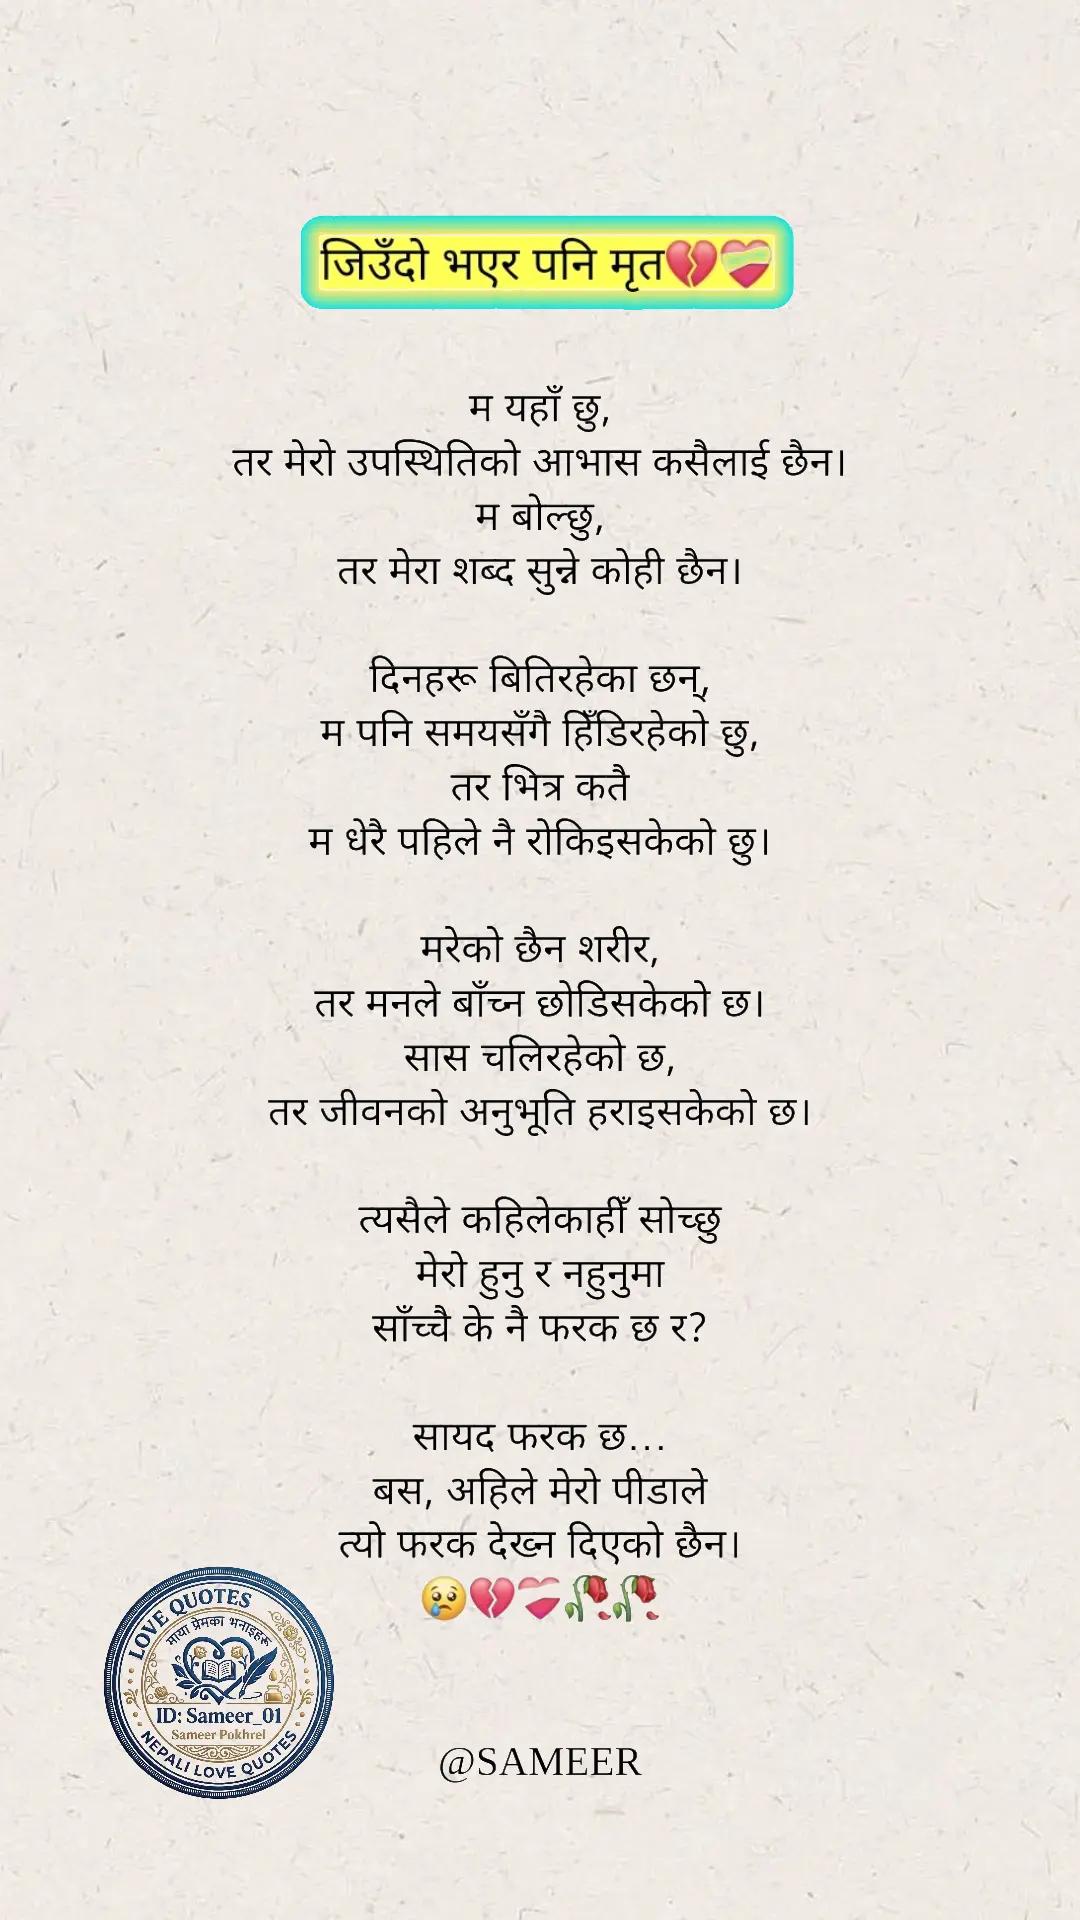 जिउँदो भएर पनि मृत💔❤️‍🩹
म यहाँ छु,
तर मेरो उपस्थितिको आभास कसैलाई छैन।
म बोल्छु,
तर मेरा शब्द सुन्ने कोही छैन।
दिनहरू बितिरहेका छन्,
म पनि समयसँगै हिँडिरहेको छु,
तर भित्र कतै
म धेरै पहिले नै रोकिइसकेको छु।
मरेको छैन शरीर,
तर मनले बाँच्न छोडिसकेको छ।
सास चलिरहेको छ,
तर जीवनको अनुभूति हराइसकेको छ।
त्यसैले कहिलेकाहीँ सोच्छु
मेरो हुनु र नहुनुमा
साँच्चै के नै फरक छ र?
सायद फरक छ...
बस, अहिले मेरो पीडाले
त्यो फरक देख्न दिएको छैन।
😢💔❤️‍🩹🥀🥀
LOVE QUOTES
माया प्रेमका भनाइहरू
ID: Sameer_01
Sameer Pokhrel
NEPALI LOVE QUOTES
@SAMEER